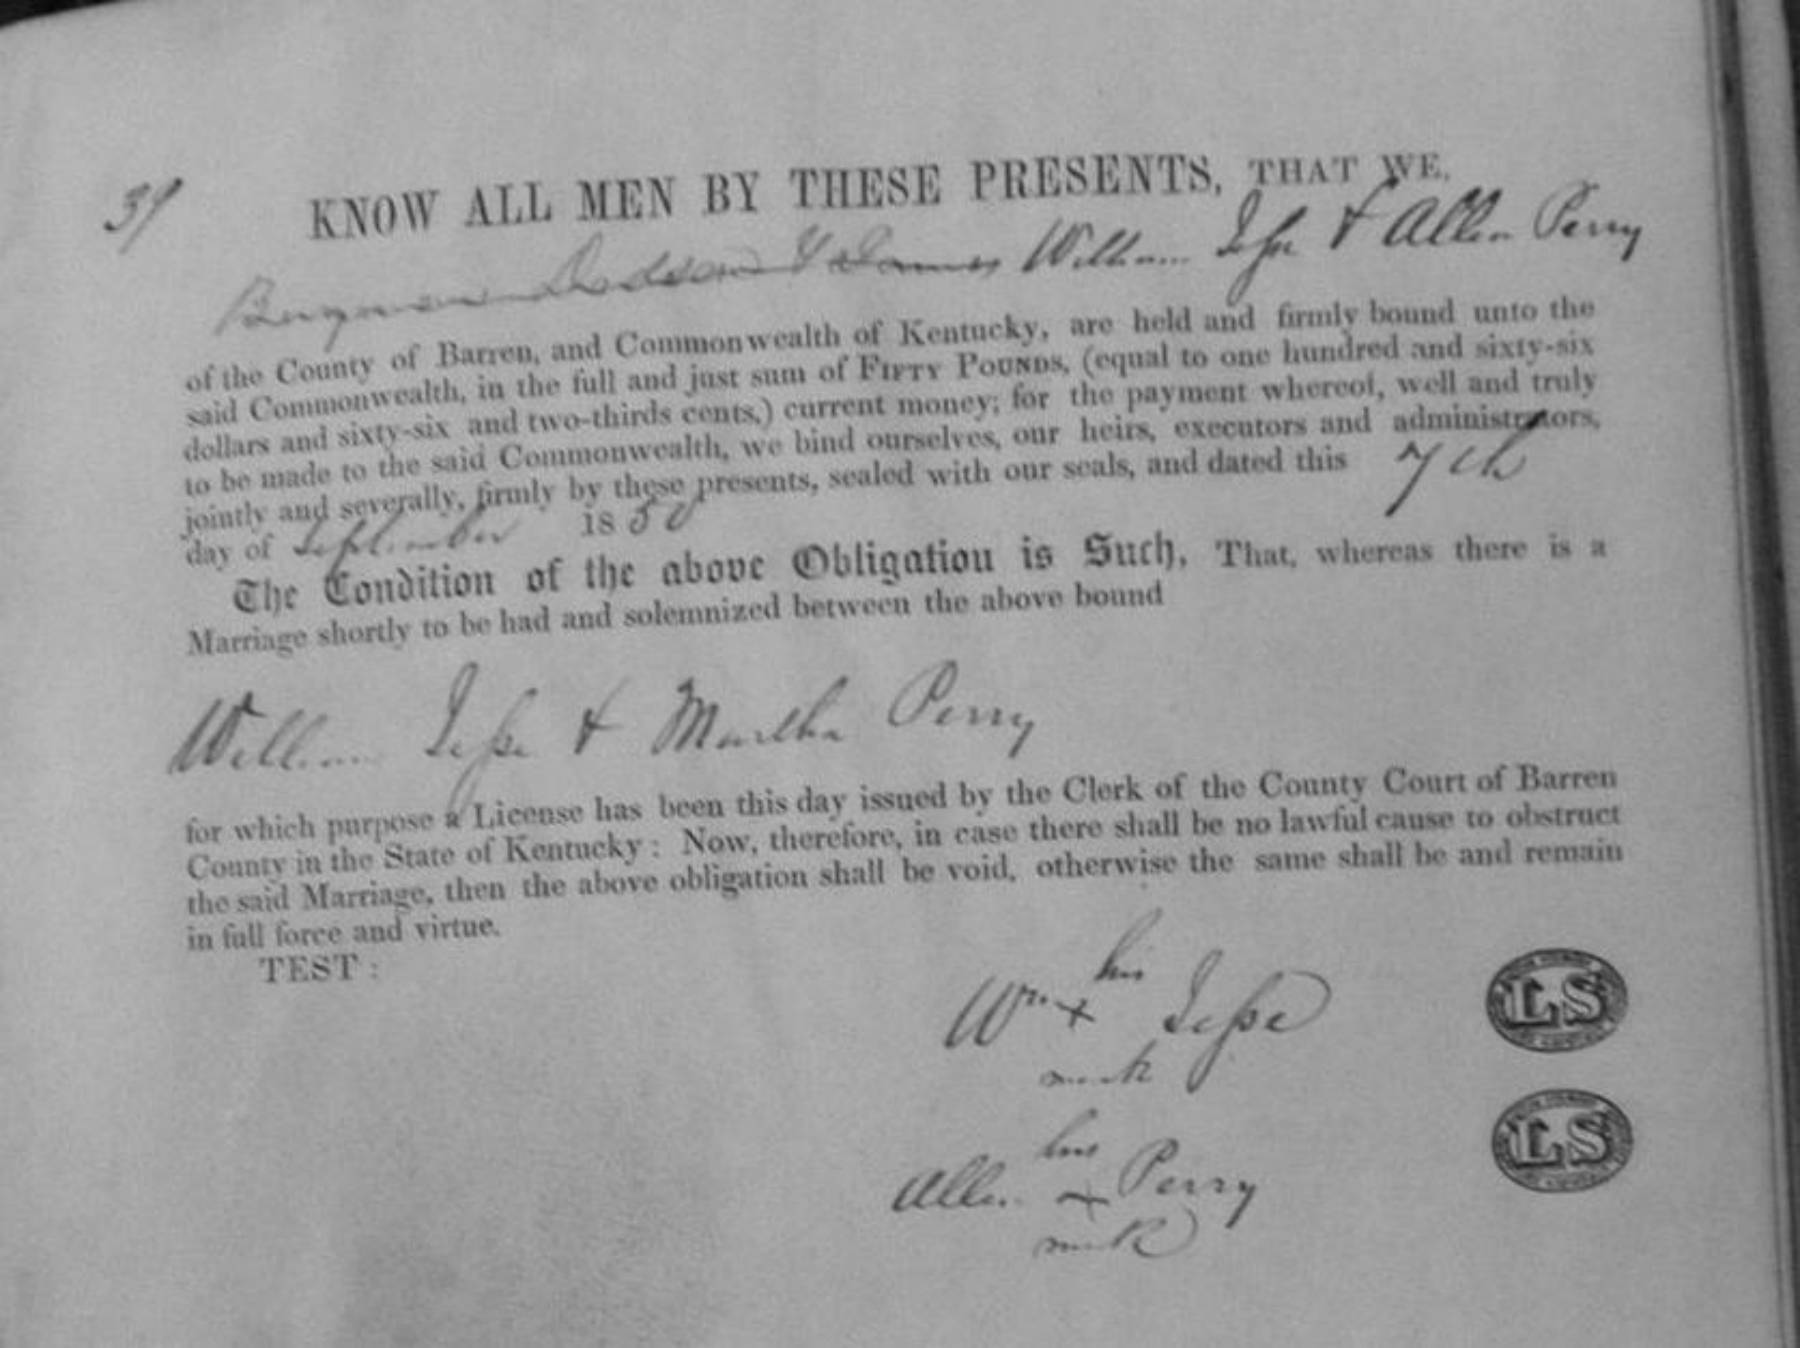 39
KNOW ALL MEN BY THESE PRESENTS, THAT WE,
Dodson & James William Jesse & Allen Perry
of the County of Barren, and Commonwealth of Kentucky, are held and firmly bound unto the
said Commonwealth, in the full and just sum of FIFTY POUNDS, (equal to one hundred and sixty-six
dollars and sixty-six and two-thirds cents,) current money; for the payment whereof, well and truly
to be made to the said Commonwealth, we bind ourselves, our heirs, executors and administrators,
jointly and severally, firmly by these presents, sealed with our seals, and dated this 7th
day of September 1850
The Condition of the above Obligation is Such, That, whereas there is a
Marriage shortly to be had and solemnized between the above bound
William Jesse & Martha Perry
for which purpose a License has been this day issued by the Clerk of the County Court of Barren
County in the State of Kentucky: Now, therefore, in case there shall be no lawful cause to obstruct
the said Marriage, then the above obligation shall be void, otherwise the same shall be and remain
in full force and virtue.
TEST:
his
Wm x Jesse LS
mark
his
Allen x Perry LS
mark